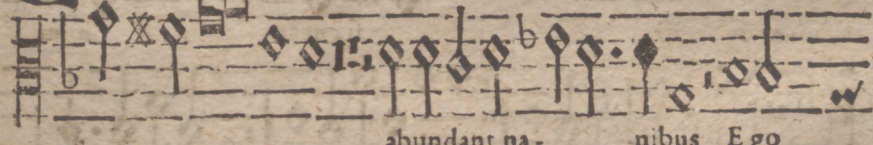 abundant pa- nibus Ego